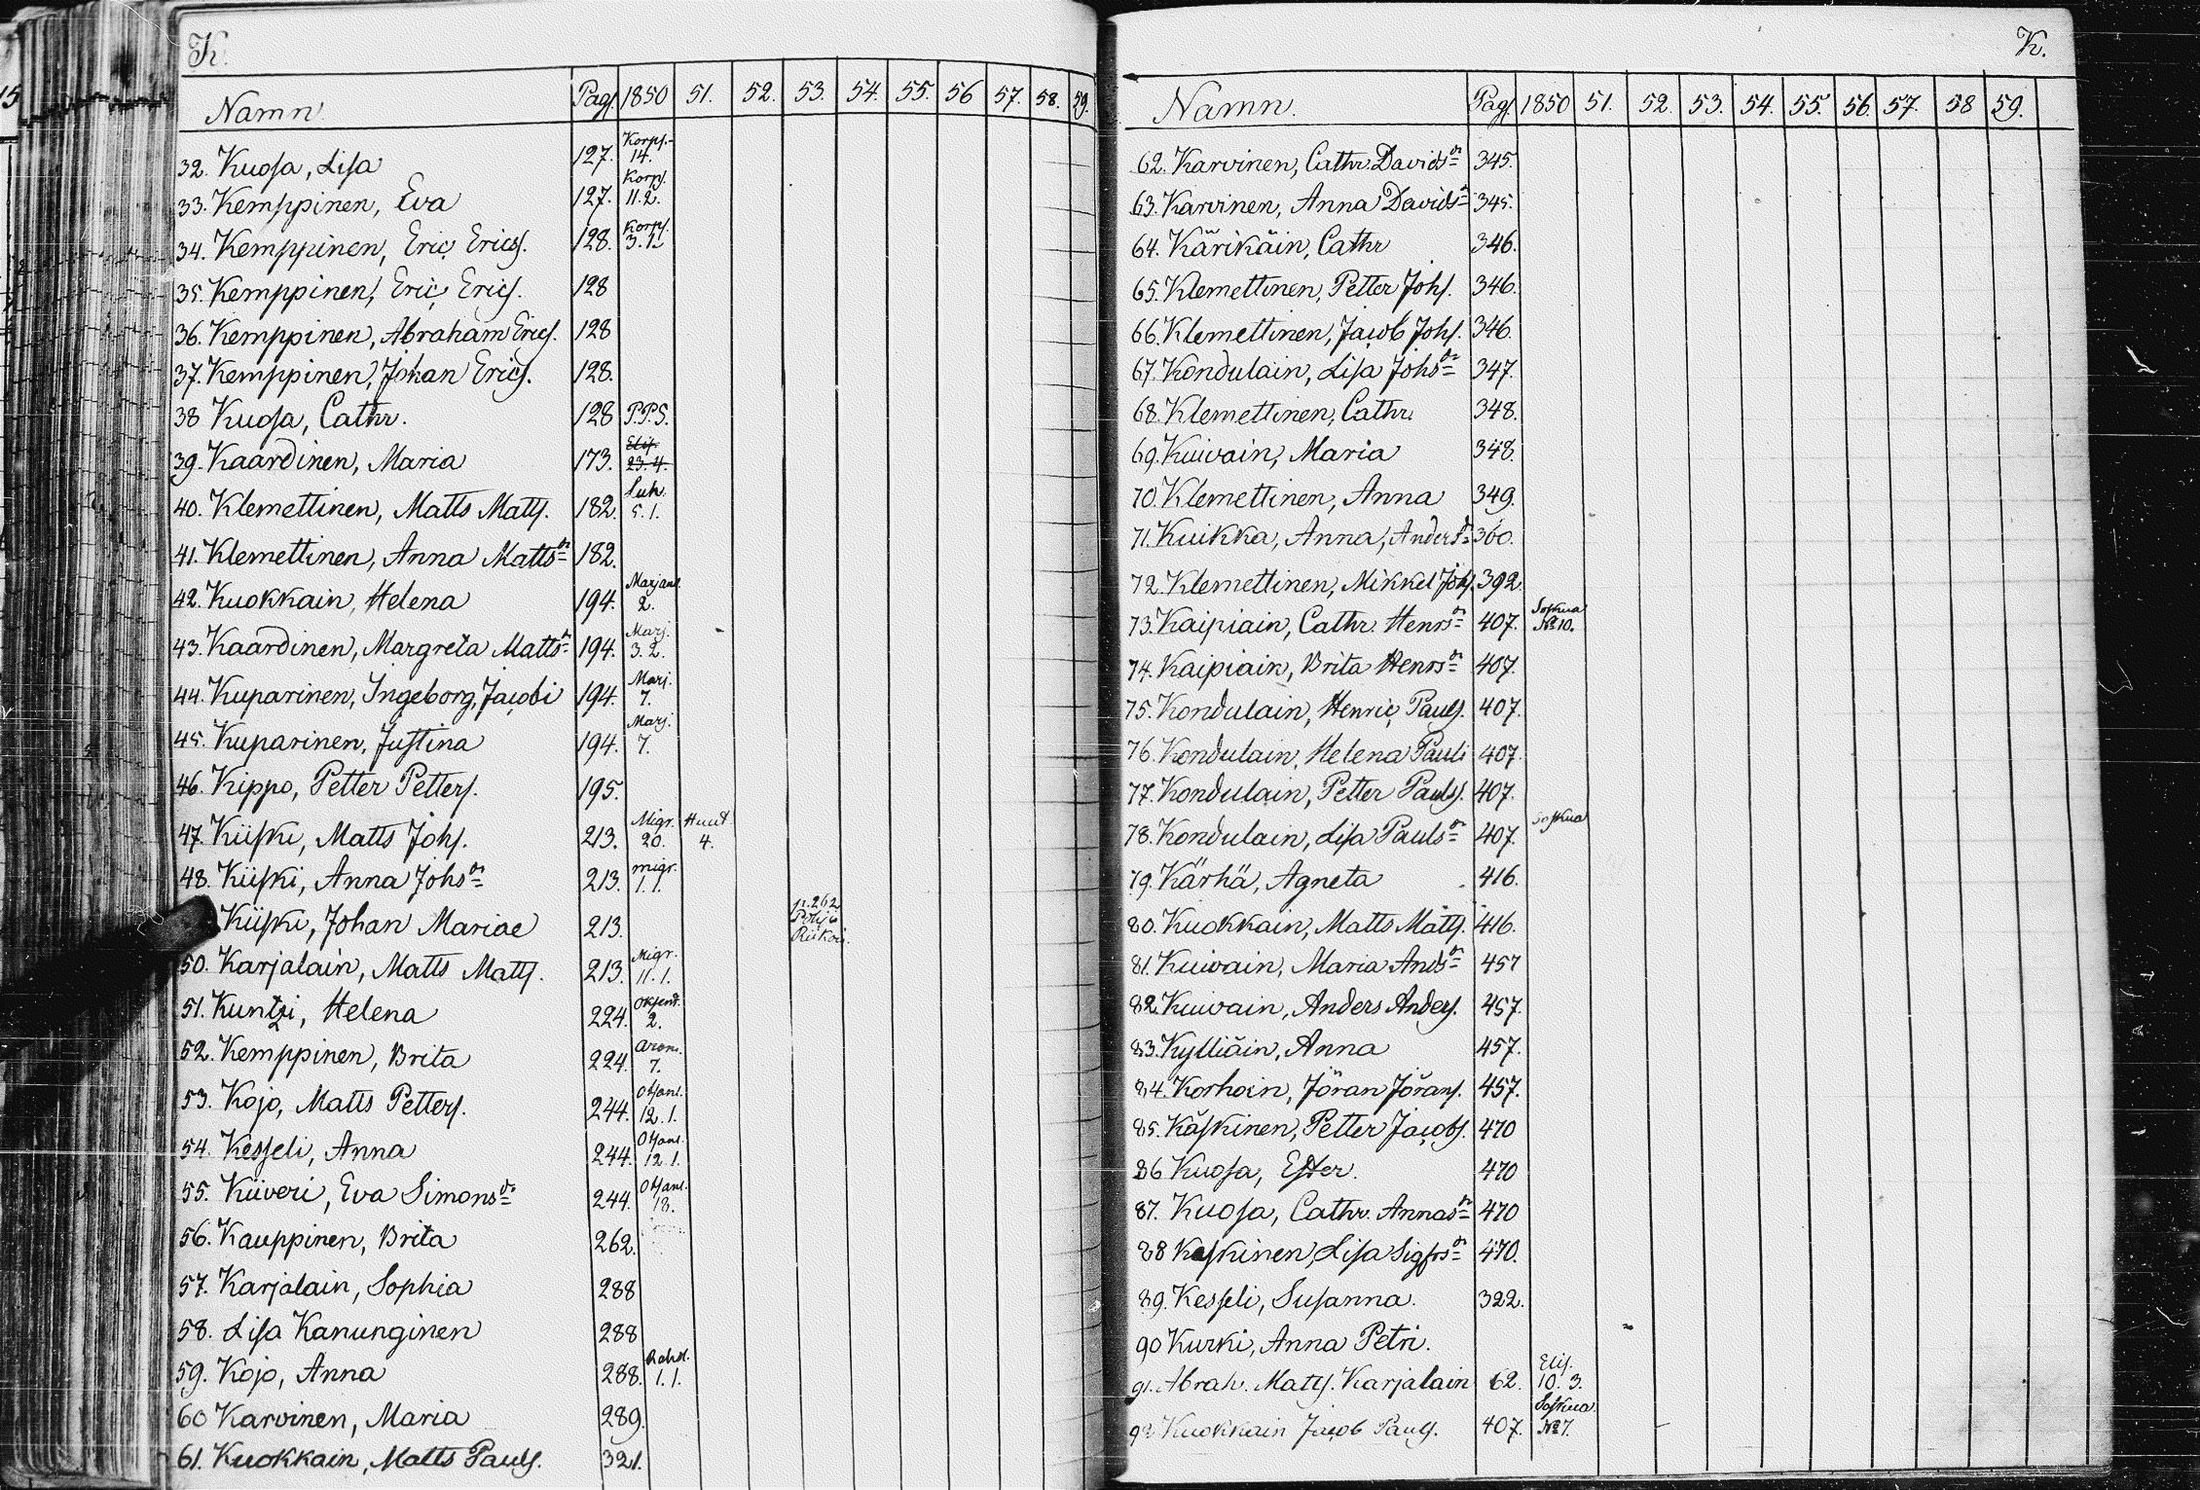 K.
Namn. Pag. 1850 51. 52. 53. 54. 55. 56 57. 58. 59.
32. Kuosa, Lisa 127. Korps. 14.
33. Kemppinen, Eva 127. Korps. 11.2.
34. Kemppinen, Eric Erics. 128. Korps. 3.1.
35. Kemppinen, Eric Erics. 128
36. Kemppinen, Abraham Erics. 128
37. Kemppinen, Johan Erics. 128.
38 Kuosa, Cathr. 128 P.P.S.
39. Kaardinen, Maria 173. Elis. 23.4.
40. Klemettinen, Matts Matts. 182. Suk. 5.1.
41. Klemettinen, Anna Mattsdr 182.
42. Kuokkain, Helena 194. Marjanl. 2.
43. Kaardinen, Margreta Mattsdr 194. Marj. 3.2.
44. Kuparinen, Ingeborg, Jacobi 194. Marj. 7.
45. Kuparinen, Justina 194. Marj. 7.
46. Kippo, Petter Petters. 195.
47. Kiiski, Matts Johs. 213. Migr. 20. Huut 4.
48. Kiiski, Anna Johsdr 213. migr. 1.1.
Kiiski, Johan Mariae 213. p. 262
50. Karjalain, Matts Matts. 213. Migr. 11.1.
51. Kuntzi, Helena 224. 2.
52. Kemppinen, Brita 224. Arom. 7.
53. Kojo, Matts Petters. 244. 12.1.
54. Kesseli, Anna 244. 12.1.
55. Kiiveri, Eva Simonsdr 244. 18.
56. Kauppinen, Brita 262.
57. Karjalain, Sophia 288
58. Lisa Kanunginen 288
59. Kojo, Anna 288. Rahd. 1.1.
60 Karvinen, Maria 289.
61. Kuokkain, Matts Pauls. 321.
K.
Namn. Pag. 1850 51. 52. 53. 54. 55. 56. 57. 58 59.
62. Karvinen, Cathr. Davidsdr 345.
63. Karvinen, Anna Davidsdr 345.
64. Kärikäin, Cathr 346.
65. Klemettinen, Petter Johs. 346.
66. Klemettinen, Jacob Johs. 346.
67. Kondulain, Lisa Johsdr 347.
68. Klemettinen, Cathr. 348.
69. Kuivain, Maria 348.
70. Klemettinen, Anna 349.
71. Kuikka, Anna, Andersdr 360.
72. Klemettinen, Mikkel Johs. 392.
73. Kaipiain, Cathr. Henrsdr 407. Soskua No 10.
74. Kaipiain, Brita Henrsdr 407.
75. Kondulain, Henric Pauls. 407.
76. Kondulain, Helena Pauli 407.
77. Kondulain, Petter Pauls. 407.
78. Kondulain, Lisa Paulsdr 407. Soskua
79. Kärhä, Agneta 416.
80. Kuokkain, Matts Matts. 416.
81. Kuivain, Maria Andsdr 457
82. Kuivain, Anders Anders. 457.
83. Kylliäin, Anna 457.
84. Korhoin, Jöran Jörans. 457.
85. Käskinen, Petter Jacobs. 470
86 Kuosa, Ester. 470
87. Kuosa, Cathr. Annasdr 470
88 Keskinen, Lisa Sigfrsdr 470.
89. Kesseli, Susanna. 322.
90 Kurki, Anna Petri.
91. Abrah. Matts. Karjalain 62. Elis. 10. 3.
92. Kuokkain Jacob Pauls. 407. Soskua. No 7.